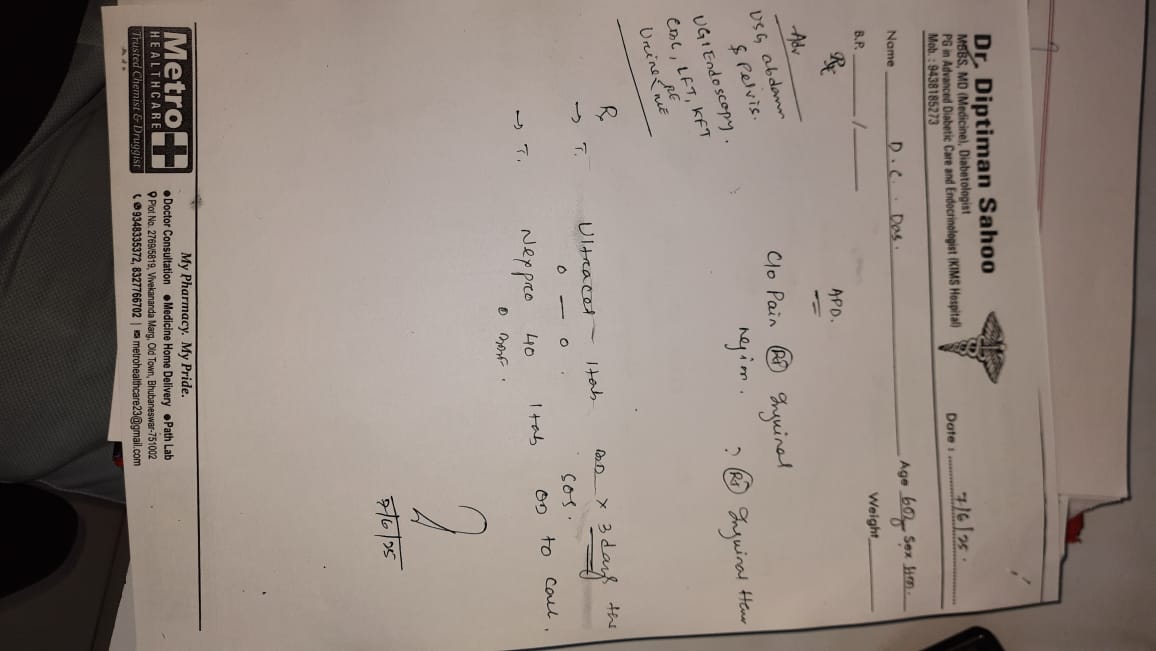 Dr. Diptiman Sahoo
MBBS, MD (Medicine), Diabetologist
PG in Advanced Diabetic Care and Endocrinologist (KIMS Hospital)
Mob. : 9438185273
Date : 7/6/25.
Name D.C. Das. Age 60y Sex
B.P. / Weight
Rx
APD.
Adv
USG abdomen
& Pelvis.
UGI Endoscopy.
CBC, LFT, KFT
Urine RE ME
C/o Pain (Rt) Inguinal
region. ? (Rt) Inguinal
Rx
→ T. Ultracet 1 tab BD x 3 days
o — o. SOS.
→ T. Nexpro 40 1 tab OD to cont.
7/6/25
Metro
HEALTHCARE
Trusted Chemist & Druggist
My Pharmacy. My Pride.
• Doctor Consultation • Medicine Home Delivery • Path Lab
Plot No. 2769/5819, Vivekananda Marg, Old Town, Bhubaneswar-751002
9348335372, 8327766702 | metrohealthcare23@gmail.com